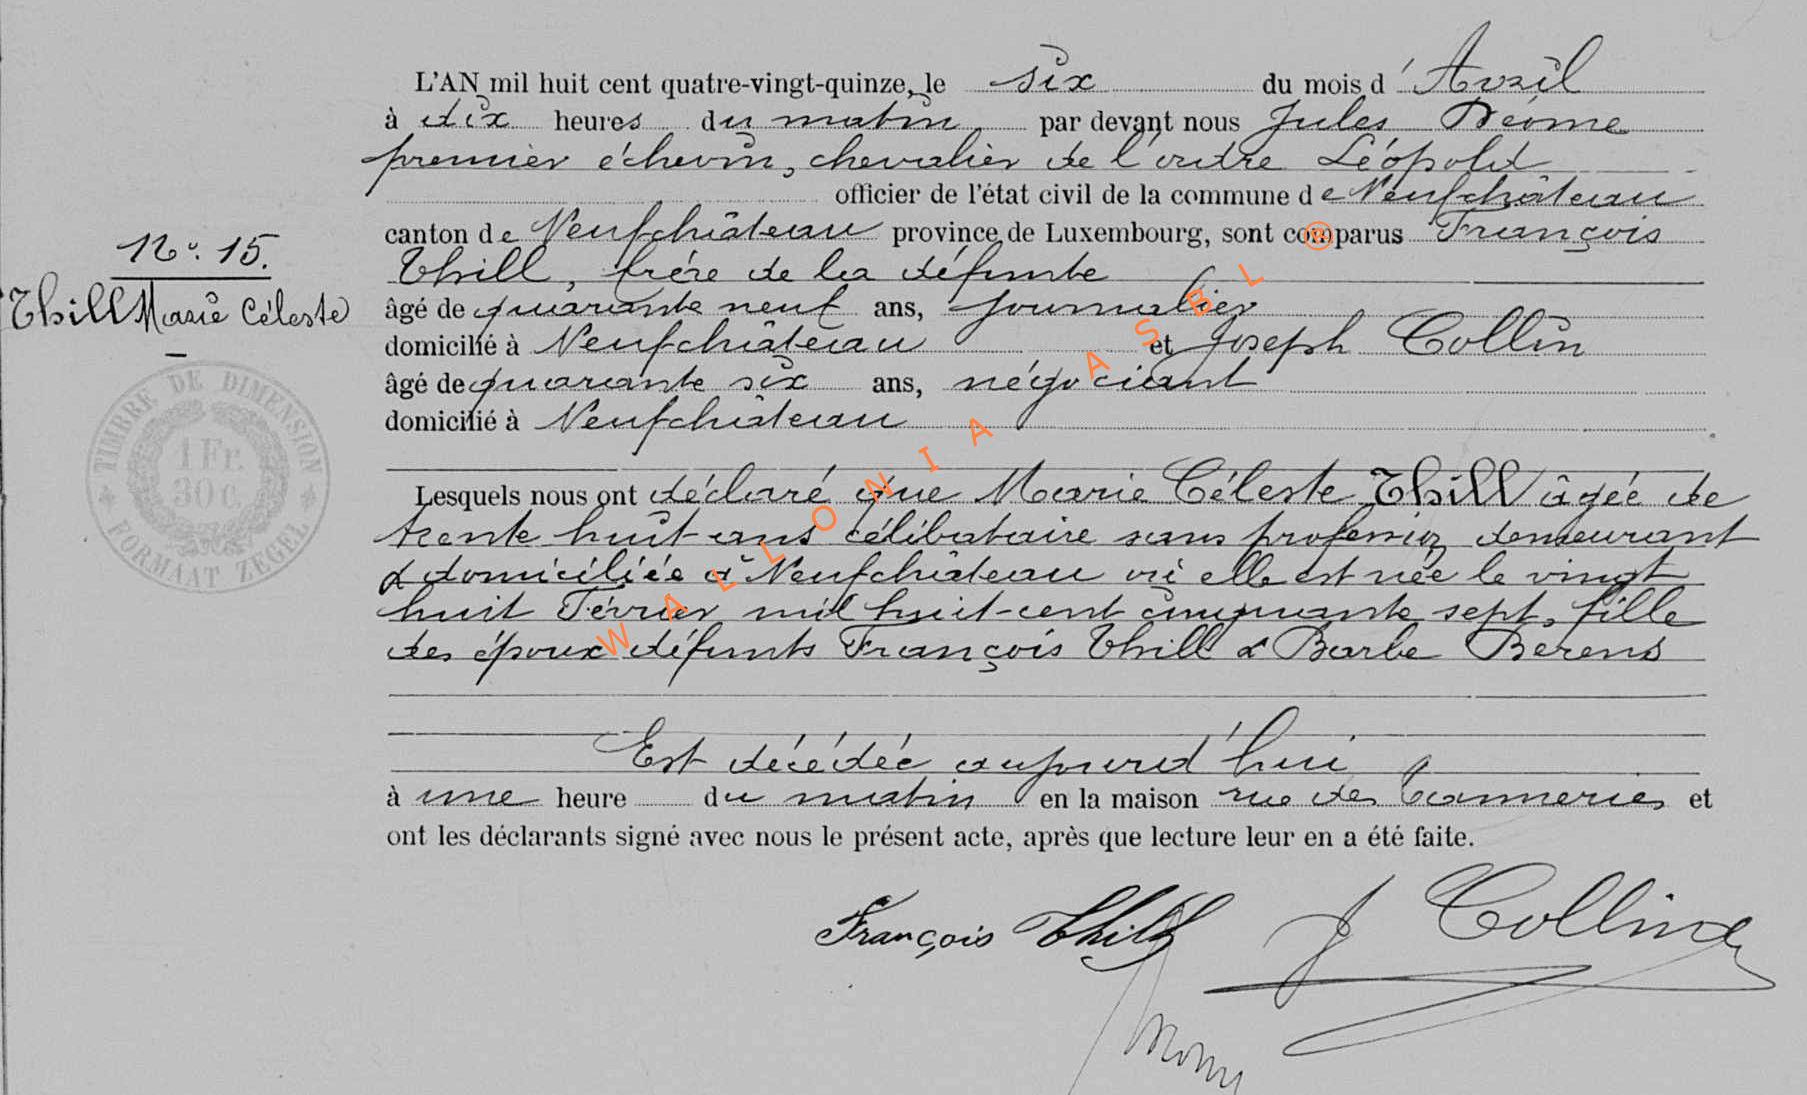 L'AN mil huit cent quatre-vingt-quinze, le six du mois d'Avril
à dix heures du matin par devant nous Jules
premier échevin, chevalier de l'ordre Léopold
officier de l'état civil de la commune de Neufchâteau
canton de Neufchâteau province de Luxembourg, sont comparus François
Thill, frère de la défunte
âgé de quarante neuf ans, journalier
domicilié à Neufchâteau et Joseph Collin
âgé de quarante six ans, négociant
domicilié à Neufchâteau
N° 15.
Thill Marie Céleste
TIMBRE DE DIMENSION
1 Fr.
30 c.
FORMAAT ZEGEL
Lesquels nous ont déclaré que Marie Céleste Thill âgée de
trente huit ans célibataire sans profession demeurant
& domiciliée à Neufchâteau où elle est née le vingt
huit Février mil huit-cent cinquante sept, fille
des époux défunts François Thill & Barbe Berens
Est décédée aujourd'hui
à une heure du matin en la maison rue des Tanneries et
ont les déclarants signé avec nous le présent acte, après que lecture leur en a été faite.
François Thill J Collin
WALLONIA ASBL ®